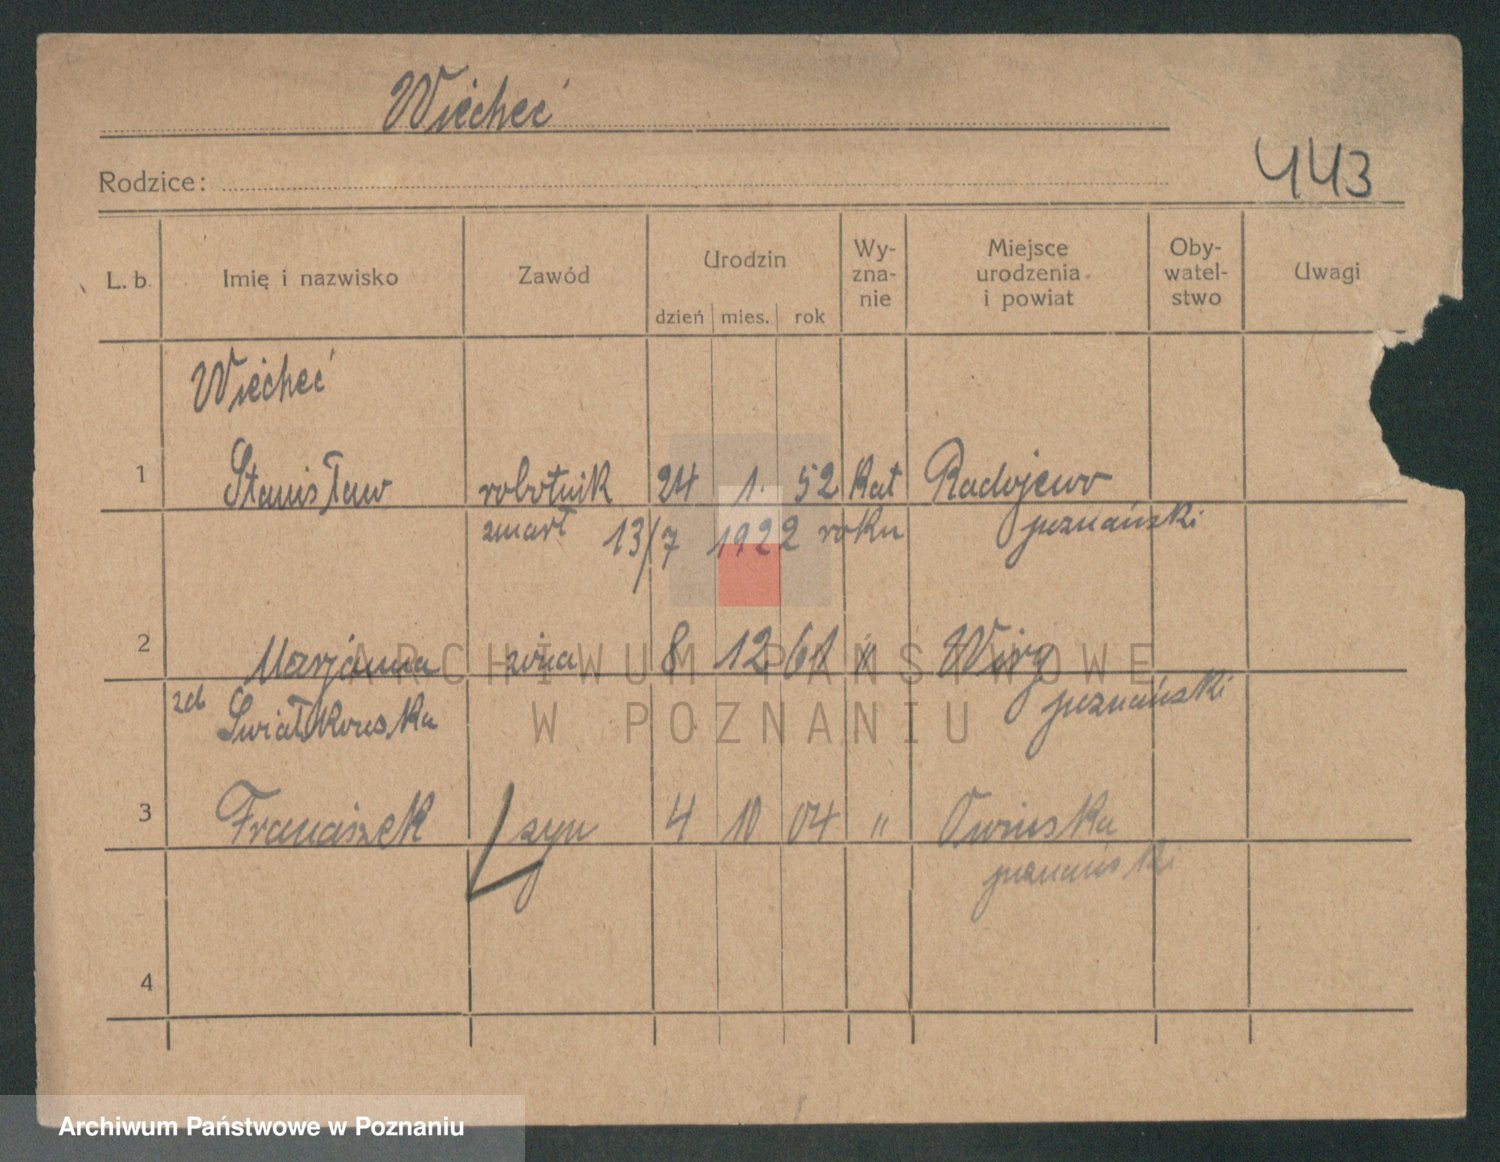 Wiecheć
Rodzice:
443
L. b. Imię i nazwisko Zawód Urodzin dzień mies. rok Wy-zna-nie Miejsce urodzenia i powiat Oby-watel-stwo Uwagi
Wiecheć
1 Stanisław robotnik 24 1. 52 kat Radojewo
zmarł 13/7 1922 roku poznański
2 Marjanna żona 8 12 61 " Wirg
zd Świałkowska poznański
3 Franciszek syn 4 10 04 " Owinska
poznański
4
ARCHIWUM PAŃSTWOWE
W POZNANIU
Archiwum Państwowe w Poznaniu